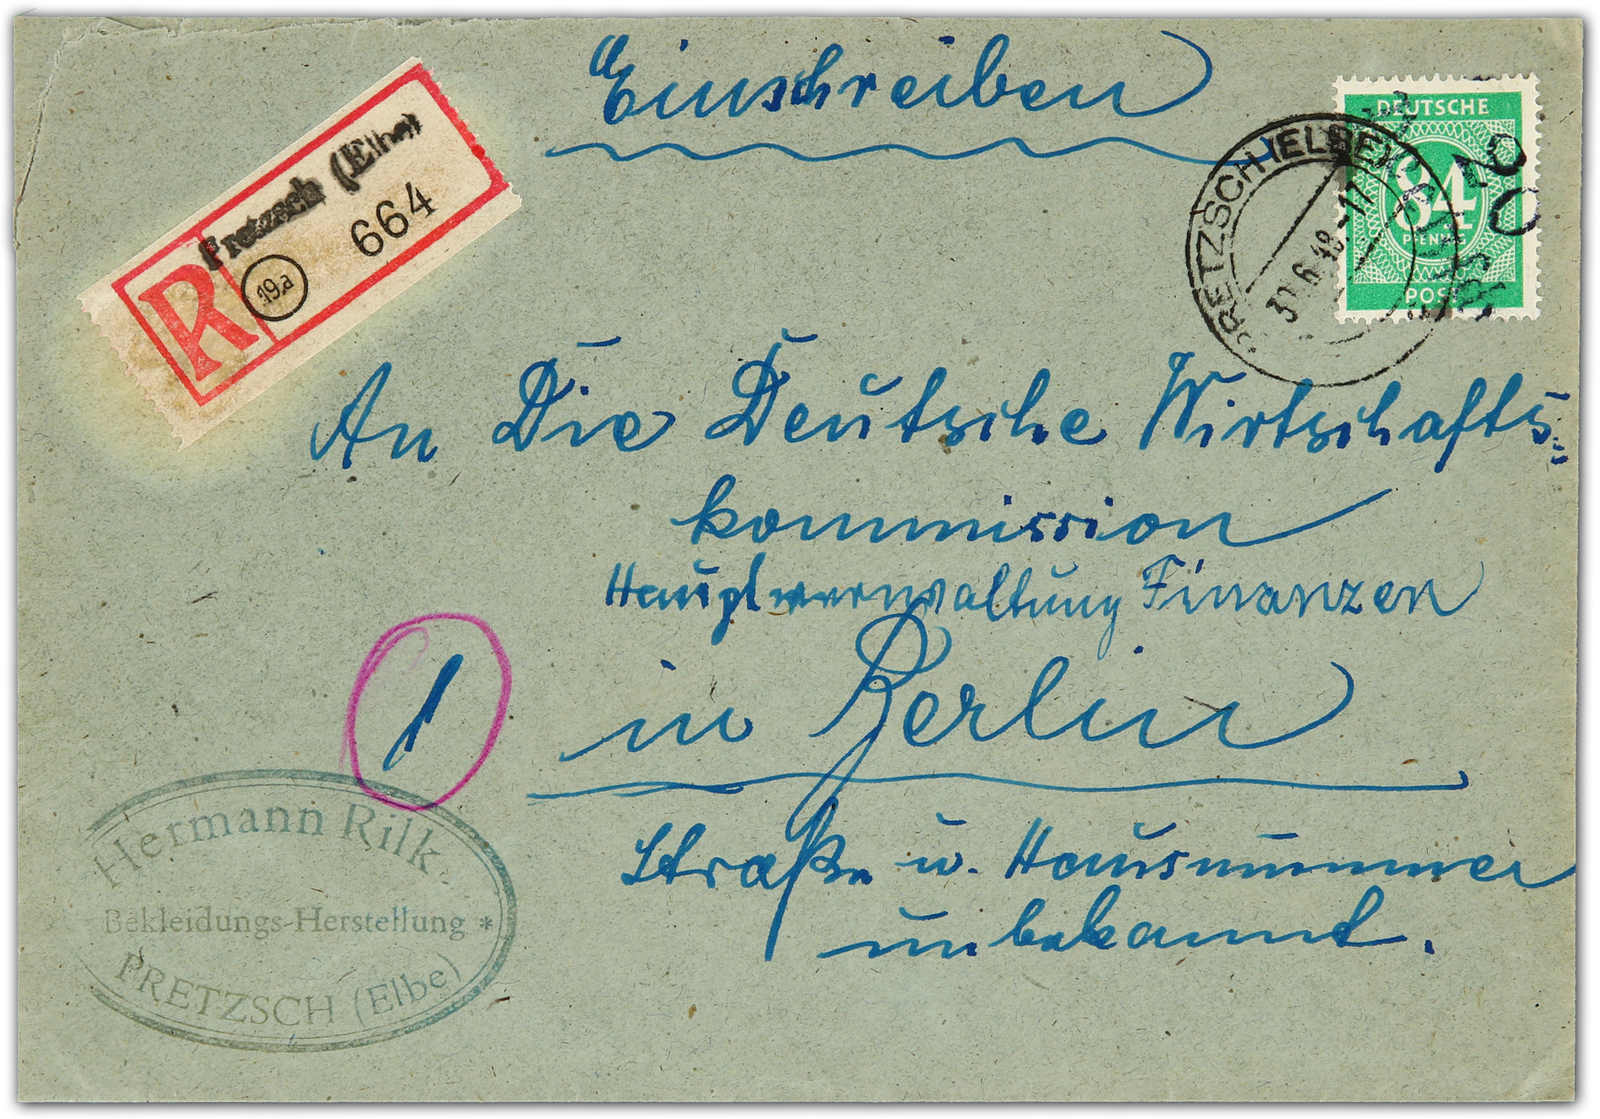 Einschreiben
Pretzsch (Elbe)
R
19a
664
DEUTSCHE
84
PFENNIG
POST
PRETZSCH (ELBE)
20
An Die Deutsche Wirtschafts=
kommission
Hauptverwaltung Finanzen
in Berlin
Straße u. Hausnummer
unbekannt.
1
Hermann Rilk
Bekleidungs-Herstellung *
PRETZSCH (Elbe)